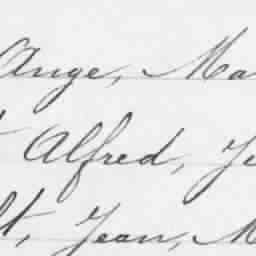 Ange, Ma
Alfred, Je
t, Jean, M